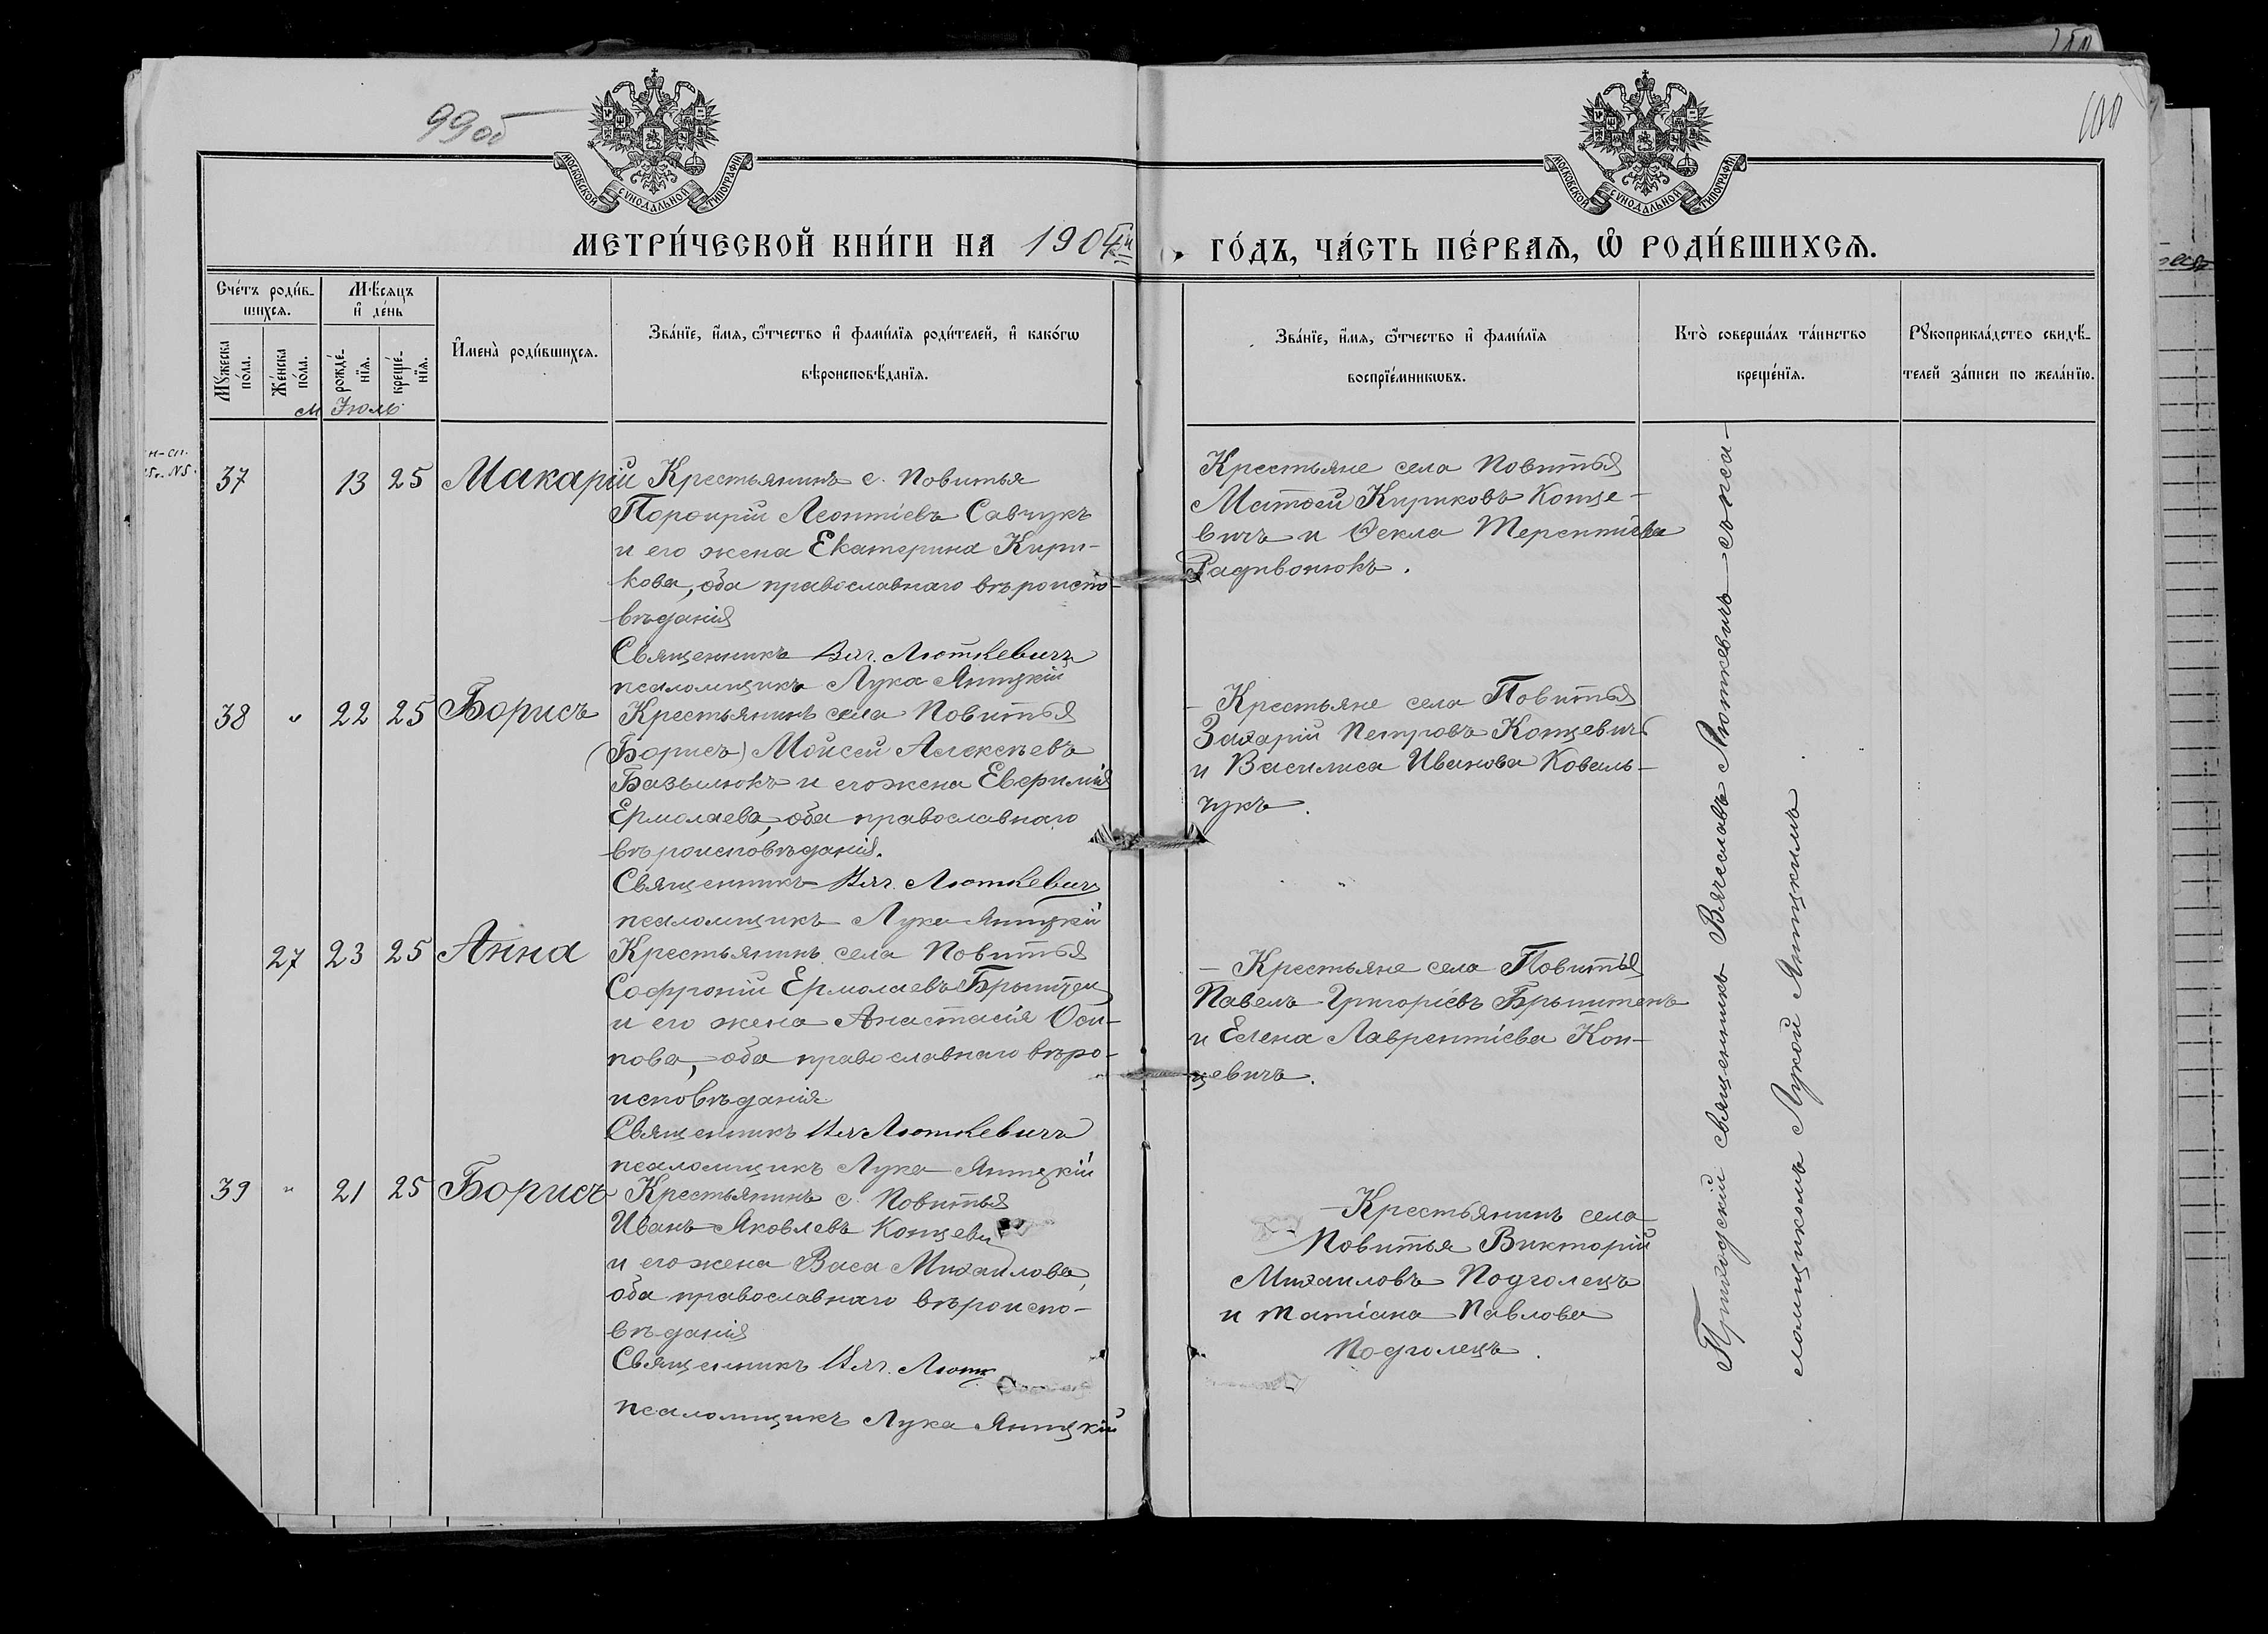 99об
100
МОСКОВСКОЙ СУНОДАЛЬНОЙ ТИПОГРАФІИ
МОСКОВСКОЙ СУНОДАЛЬНОЙ ТИПОГРАФІИ
МЕТРИ́ЧЕСКОЙ КНИ́ГИ НА 1904й ГО́ДЪ, ЧА́СТЬ ПЕ́РВАѦ, Ѡ РОДИ́ВШИХСѦ.
Сче́тъ роди́в-
шихсѧ.
Мѣ́сяцъ
и де́нь
Мꙋ́жеска
по́ла.
Же́нска
по́ла.
рожде́-
нїѧ.
креще́-
нїѧ.
Имена̀ роди́вшихсѧ.
Зва́нїе, и́мѧ, ѻ́тчество и фами́лїѧ роди́телей, и како́гѡ
вѣроисповѣ́данїѧ.
Зва́нїе, и́мѧ, ѻ́тчество и фами́лїѧ
воспрїе́мникѡвъ.
Кто̀ соверша́лъ та́инство
креще́нїѧ.
Рꙋкоприкла́дство свидѣ́-
телей за́писи по жела́нїю.
м Іюль
37 13 25 Макарій Крестьянинъ с. Повитья
Порфирій Леонтіевъ Савчукъ
и его жена Екатерина Кири-
кова, оба православнаго вѣроиспо-
вѣданія
Священникъ Вяч. Люткевичъ
псаломщикъ Лука Яницкій
Крестьяне села Повитья
Матѳей Кириковъ Конце-
вичъ и Ѳекла Терентіева
Радивонюкъ.
38 " 22 25 Борисъ Крестьянинъ села Повитья
(Борисъ) Моисей Алексѣевъ
Базылюкъ и его жена Еверимія
Ермолаева, оба православнаго
вѣроисповѣданія.
Священникъ Вяч. Люткевичъ
псаломщикъ Лука Яницкій
Крестьяне села Повитья
Захарій Петровъ Концевичъ
и Василиса Иванова Коваль-
чукъ.
27 23 25 Анна Крестьянинъ села Повитья
Софроній Ермолаевъ
и его жена Анастасія Оси-
пова, оба православнаго вѣро-
исповѣданія
Священникъ Вяч Люткевичъ
псаломщикъ Лука Яницкій
Крестьяне села Повитья
Павелъ Григоріевъ
и Елена Лаврентіева Кон-
цевичъ.
39 " 21 25 Борисъ Крестьянинъ с. Повитья
Иванъ Яковлевъ Концеви
и его жена Васа Михаилова,
оба православнаго вѣроиспо-
вѣданія
Священникъ Вяч. Лютк
псаломщикъ Лука Яницкій
Крестьянинъ села
Повитья Викторій
Михаиловъ Подголецъ
и Татіана Павлова
Подголецъ.
Приходскій священникъ Вячеславъ Люткевичъ съ пса-
ломщикомъ Лукой Яницкимъ.